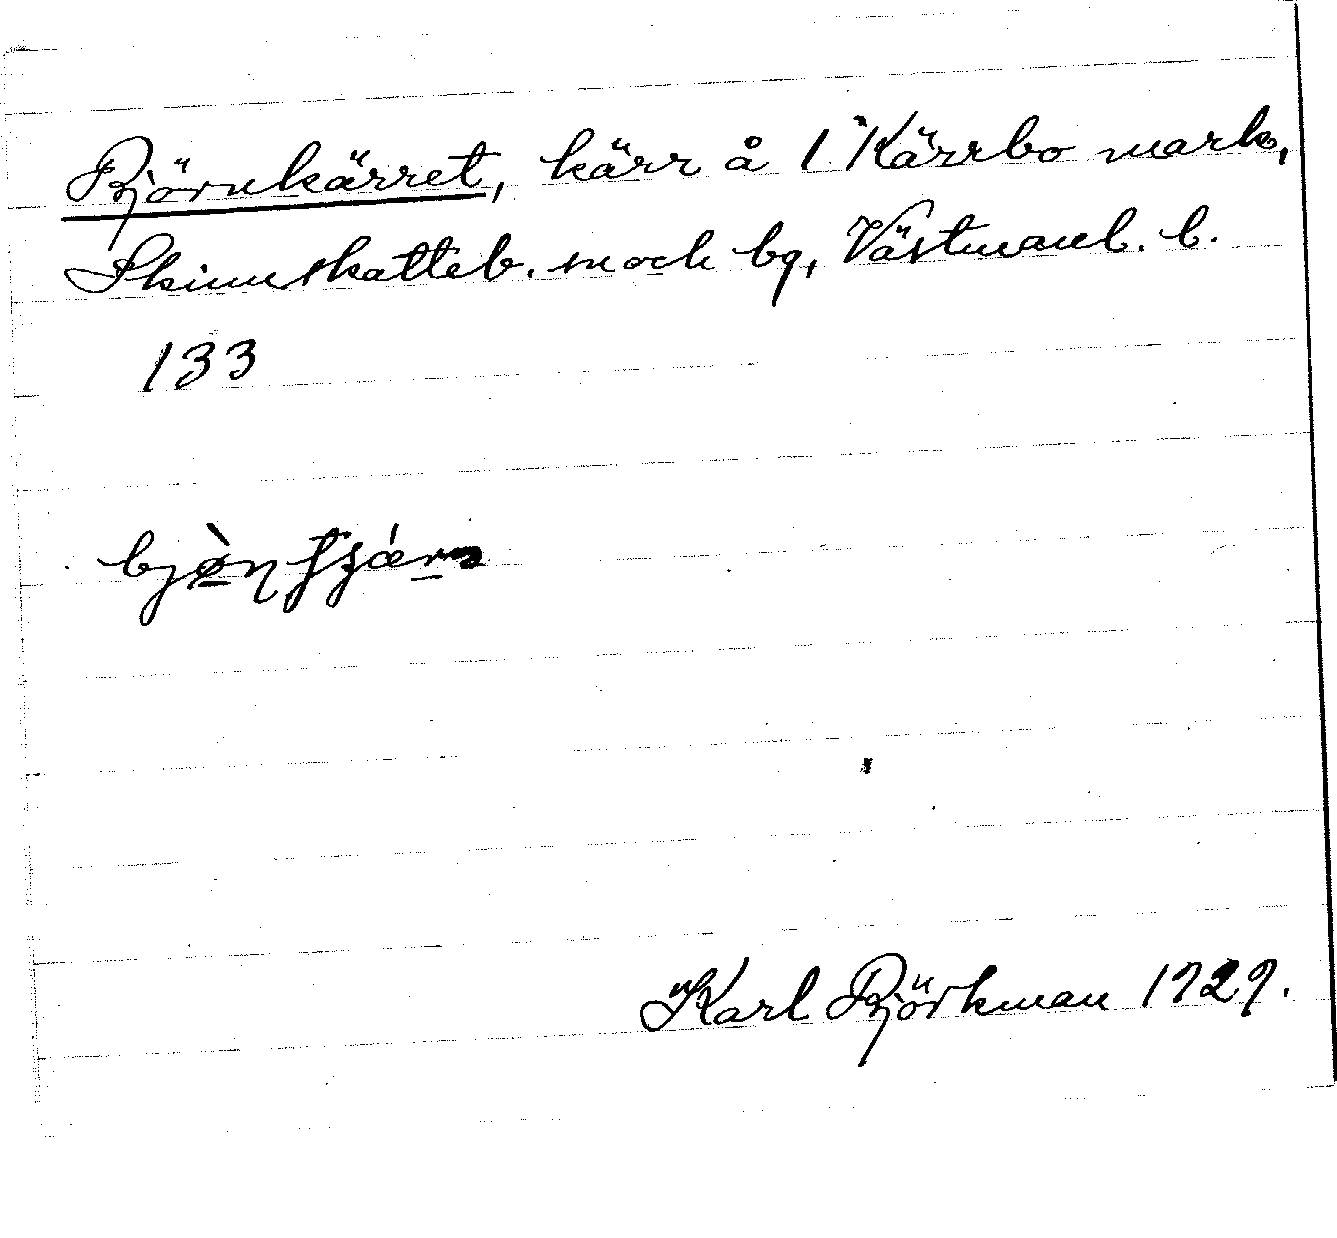 Björnkärret, kärr å 1 Kärrbo mark,
Skinnskatteb. sn och bg, Västmanl. l.
133
Karl Björkman 1929.